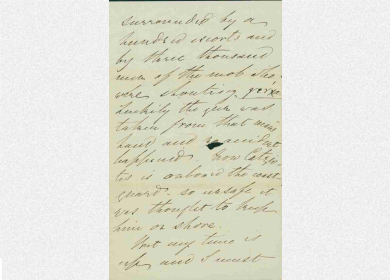 surrounded by a
hundred escorts and
by three thousand
men of the mob who
were shouting
Luckily the gun was
taken from that man's
hand and no accident
happened. Now
is aboard the coast
guard. so unsafe it
was thought to keep
him on shore.
But my time is
up and I must